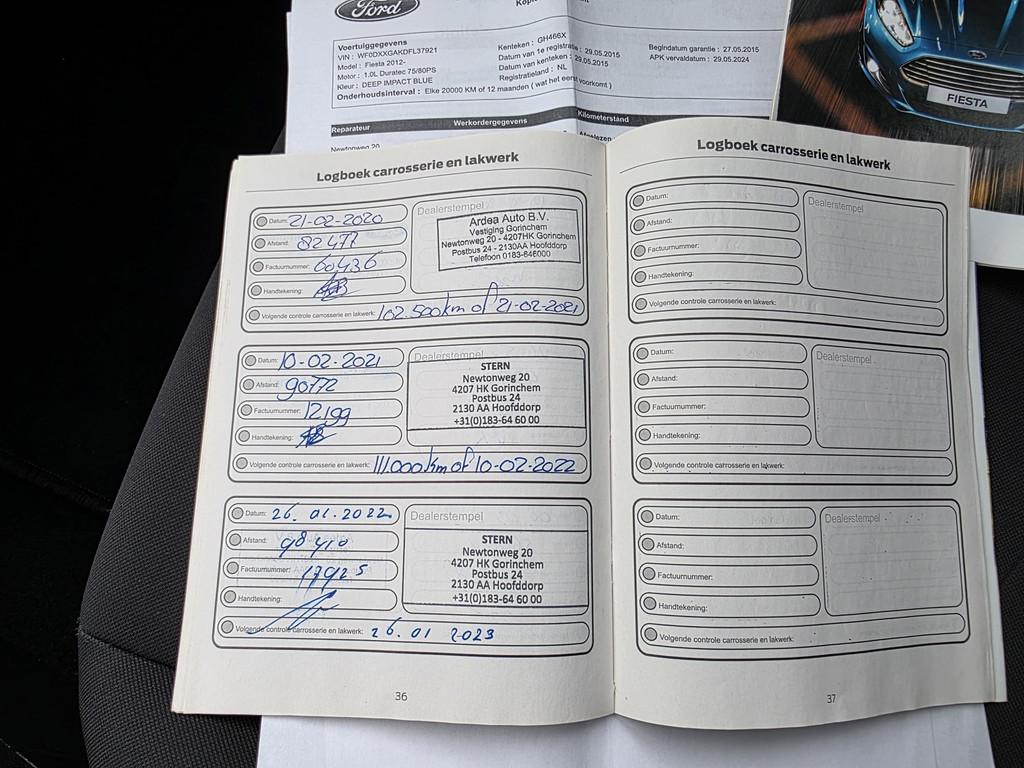 Ford
Voertuiggegevens
VIN : WF0DXXGAKDFL37921
Model : Fiesta 2012-
Motor : 1.0L Duratec 75/80PS
Kleur : DEEP IMPACT BLUE
Onderhoudsinterval : Elke 20000 KM of 12 maanden ( wat het eerst voorkomt )
Kenteken : GH466X
Datum van 1e registratie : 29.05.2015
Datum van kenteken : 29.05.2015
Registratieland : NL
Begindatum garantie : 27.05.2015
APK vervaldatum : 29.05.2024
Reparateur
Werkordergegevens
Kilometerstand
Newtonweg 20
Afgelezen
FIESTA
Logboek carrosserie en lakwerk
Datum: 21-02-2020
Afstand: 82477
Factuurnummer: 60436
Handtekening:
Volgende controle carrosserie en lakwerk: 102.500km of 21-02-2021
Dealerstempel
Ardea Auto B.V.
Vestiging Gorinchem
Newtonweg 20 - 4207HK Gorinchem
Postbus 24 - 2130AA Hoofddorp
Telefoon 0183-646000
Datum: 10-02-2021
Afstand: 90772
Factuurnummer: 12199
Handtekening:
Volgende controle carrosserie en lakwerk: 111.000km of 10-02-2022
Dealerstempel
STERN
Newtonweg 20
4207 HK Gorinchem
Postbus 24
2130 AA Hoofddorp
+31(0)183-64 60 00
Datum: 26.01.2022
Afstand: 98410
Factuurnummer: 17925
Handtekening:
Volgende controle carrosserie en lakwerk: 26.01 2023
Dealerstempel
STERN
Newtonweg 20
4207 HK Gorinchem
Postbus 24
2130 AA Hoofddorp
+31(0)183-64 60 00
36
Logboek carrosserie en lakwerk
Datum:
Afstand:
Factuurnummer:
Handtekening:
Volgende controle carrosserie en lakwerk:
Dealerstempel
Datum:
Afstand:
Factuurnummer:
Handtekening:
Volgende controle carrosserie en lakwerk:
Dealerstempel
Datum:
Afstand:
Factuurnummer:
Handtekening:
Volgende controle carrosserie en lakwerk:
Dealerstempel
37